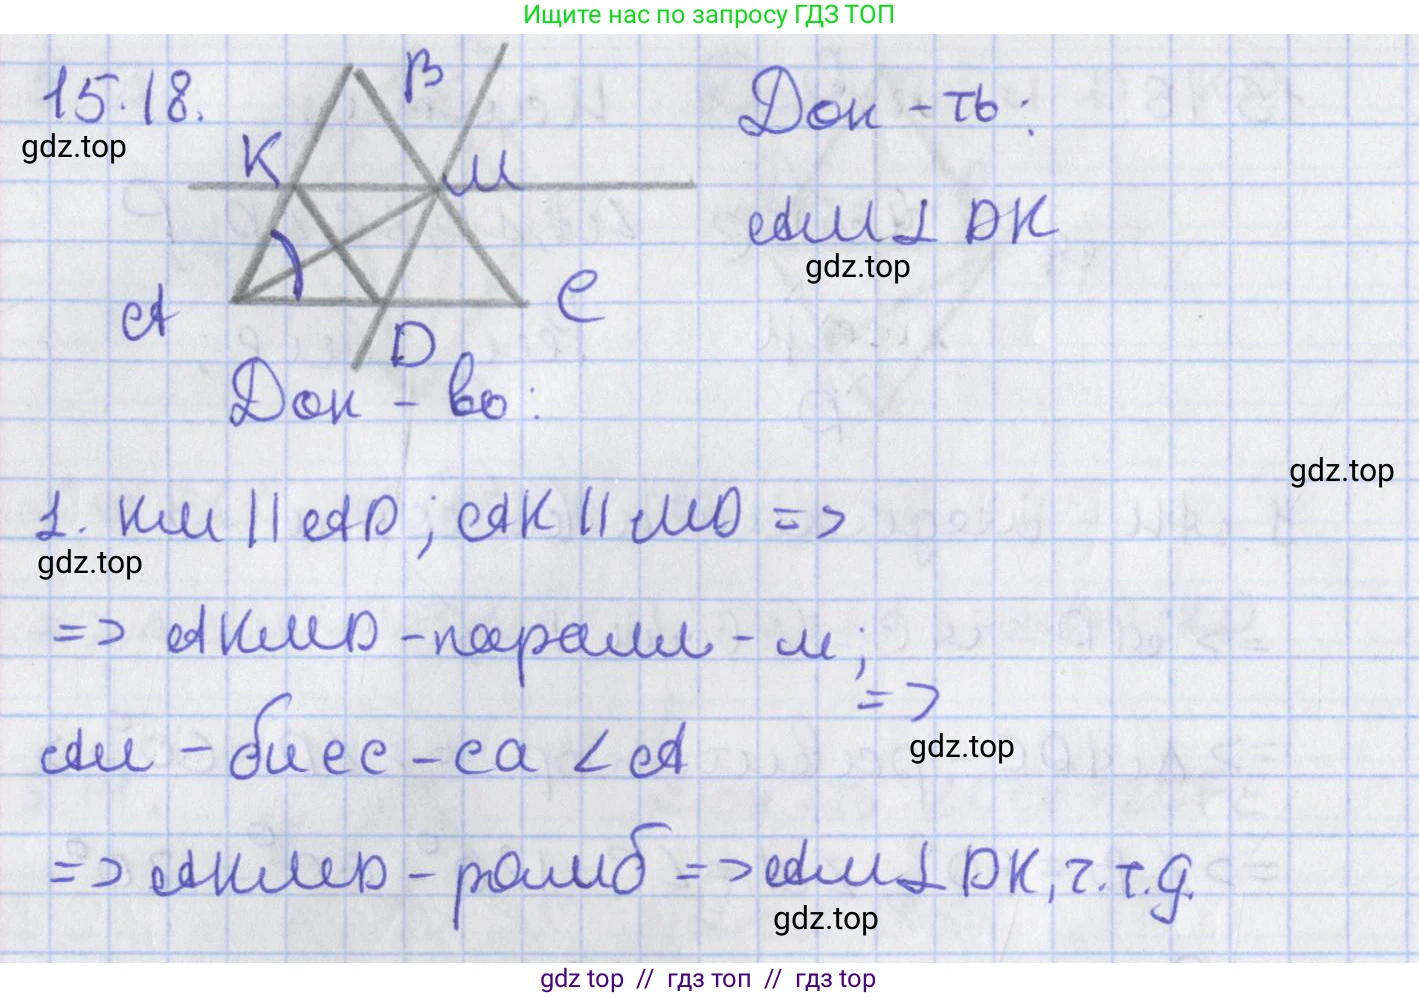 Ищите нас по запросу ГДЗ ТОП
15.18.
gdz.top
B
K
M
A
D
C
Док-ть:
AM ⊥ DK
gdz.top
Док-во:
gdz.top
1. KM || AD; AK || MD =>
gdz.top
=> AKMD - паралл-м;
=>
AM - бисс-са < A
gdz.top
=> AKMD - ромб => AM ⊥ DK, ч.т.д.
gdz.top
gdz top // гдз топ // гдз top